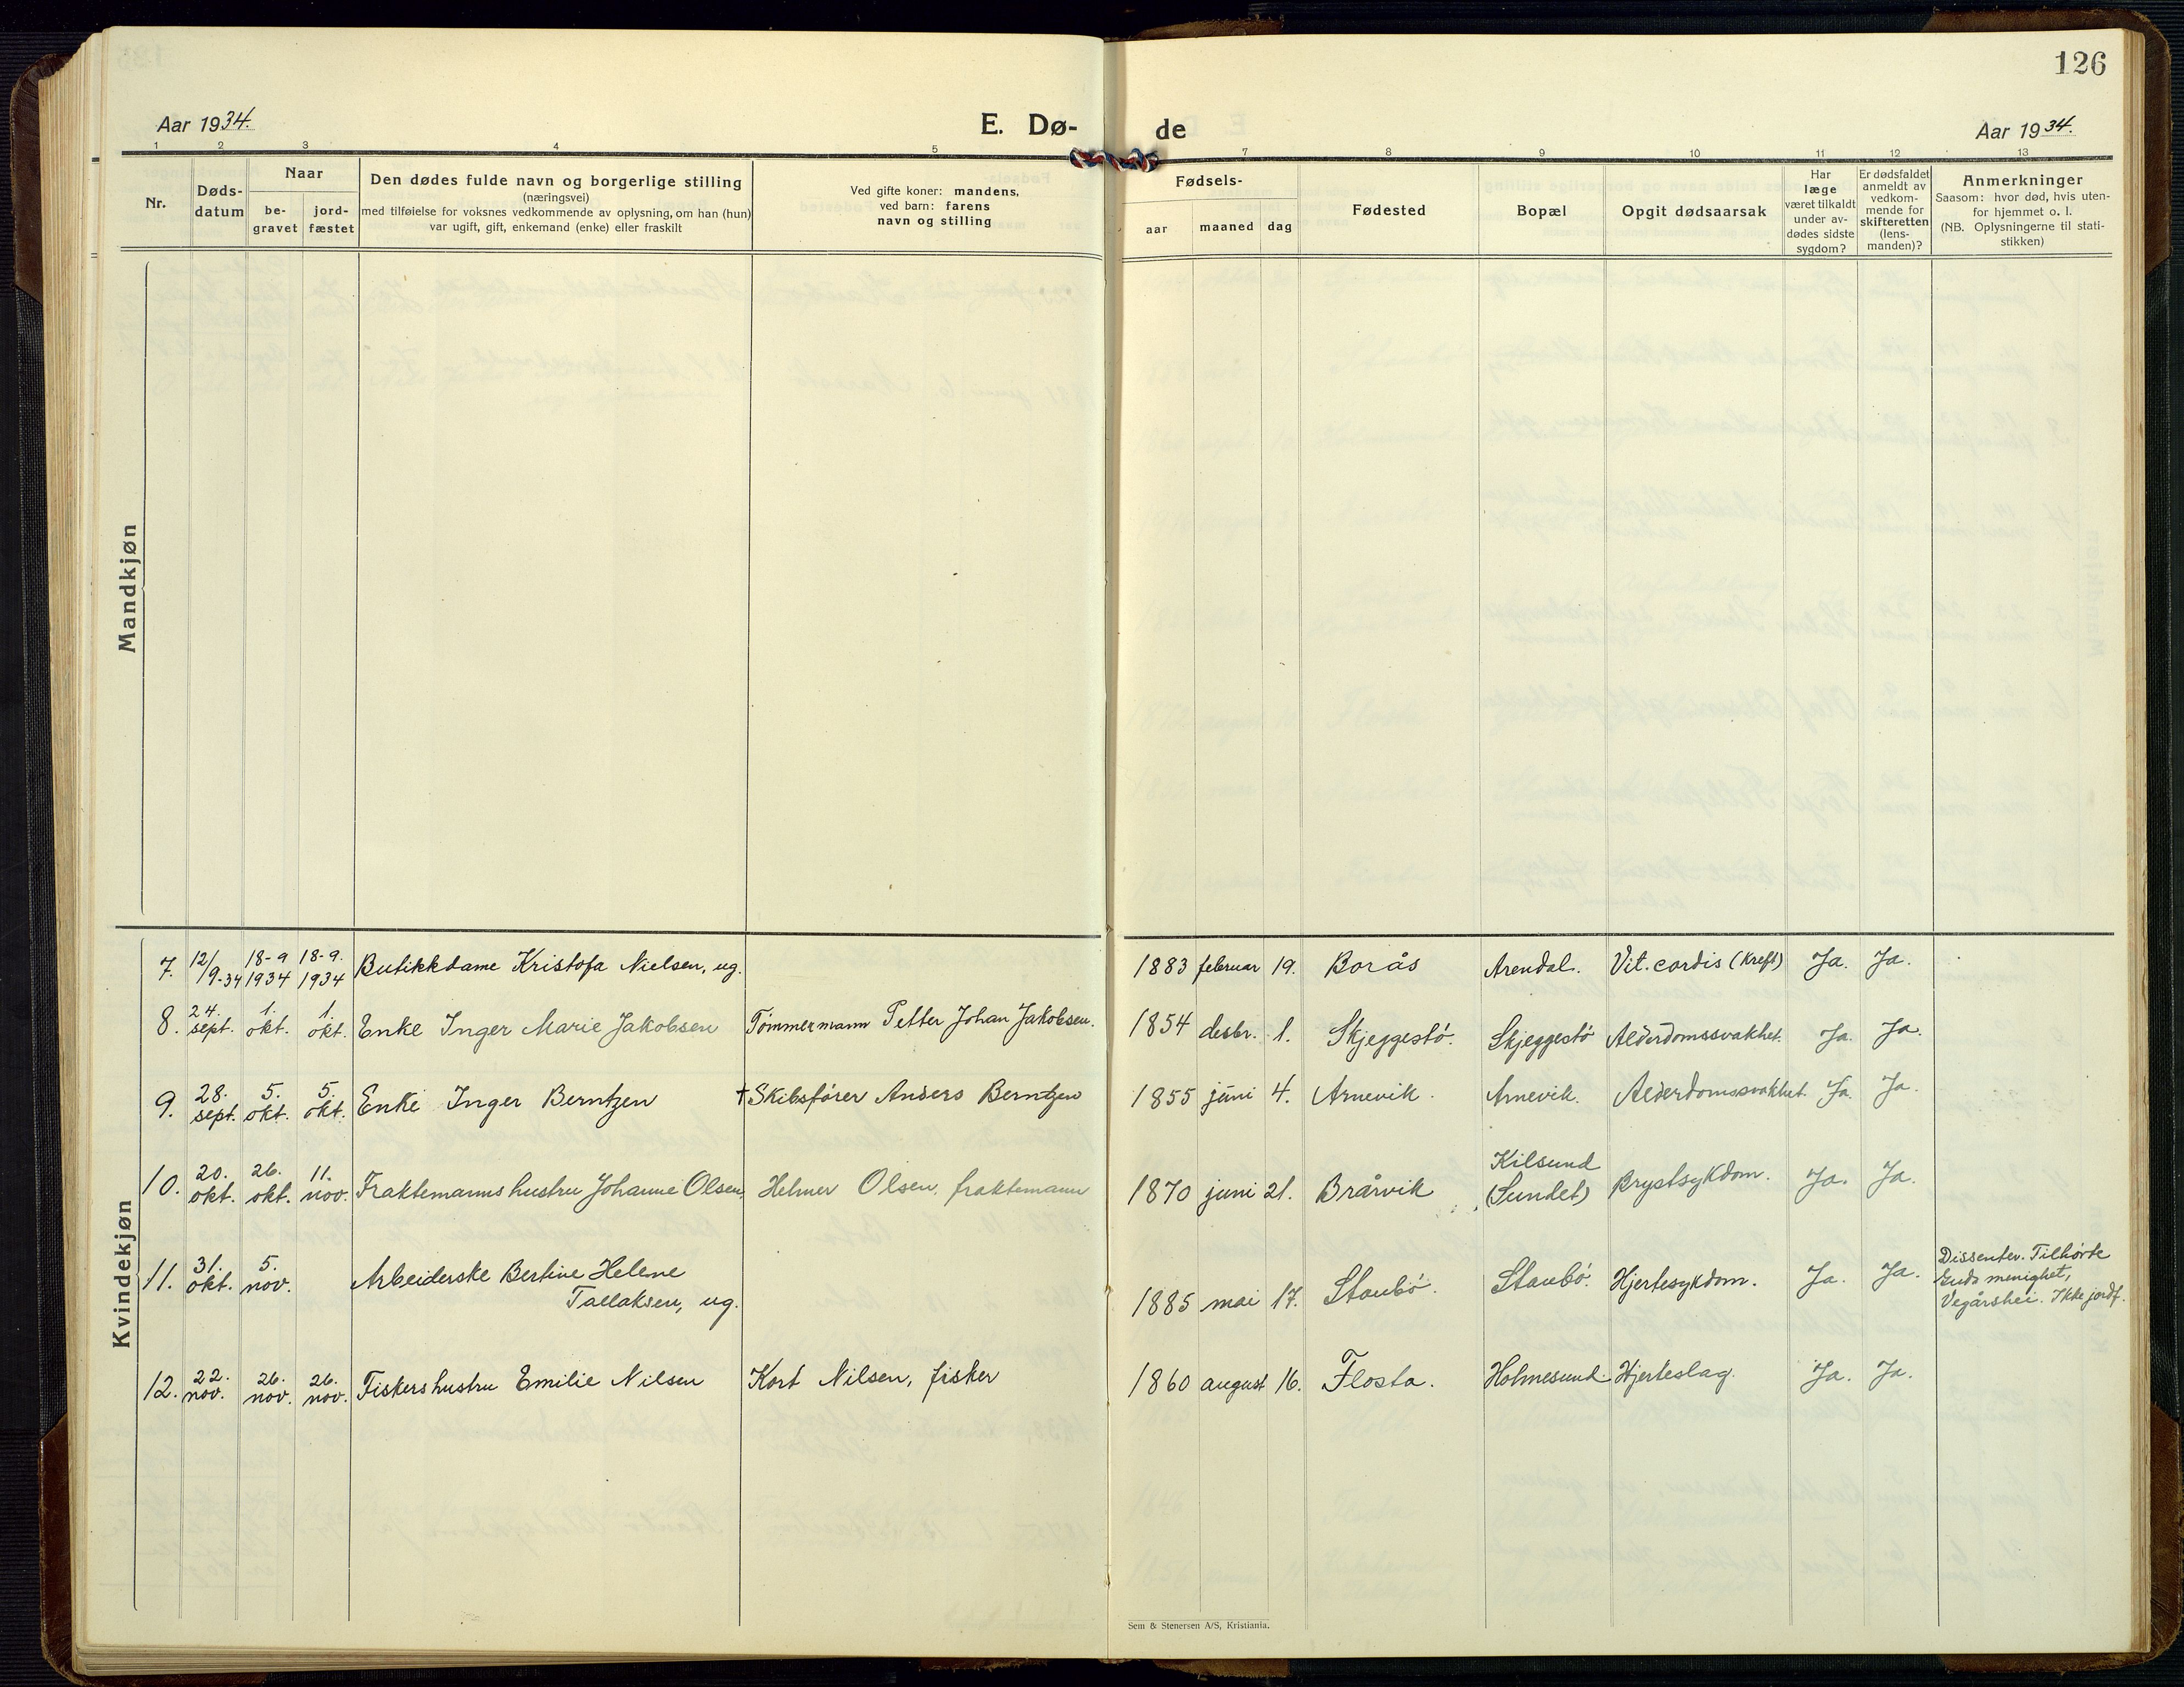 126
Aar 1934.
E. Dø-
de
Aar 1934.
1 2 3 4 5 7 8 9 10 11 12 13
Nr.
Døds-
datum
Naar
be-
gravet
jord-
fæstet
Den dødes fulde navn og borgerlige stilling
(næringsvei)
med tilføielse for voksnes vedkommende av oplysning, om han (hun)
var ugift, gift, enkemand (enke) eller fraskilt
Ved gifte koner: mandens,
ved barn: farens
navn og stilling
Fødsels-
aar maaned dag
Fødested
Bopæl
Opgit dødsaarsak
Har
læge
været tilkaldt
under av-
dødes sidste
sygdom?
Er dødsfaldet
anmeldt av
vedkom-
mende for
skifteretten
(lens-
manden)?
Anmerkninger
Saasom: hvor død, hvis uten-
for hjemmet o. l.
(NB. Oplysningerne til stati-
stikken)
Mandkjøn
Kvindekjøn
7. 12/9-34 18-9 1934 18-9. 1934 Butikkdame Kristofa Nielsen, ug. 1883 februar 19. Borås Arendal. Vit. cordis (Kreft) Ja. Ja.
8. 24. sept. 1. okt. 1. okt. Enke Inger Marie Jakobsen Tömmermann Petter Johan Jakobsen. 1854 desbr. 1. Skjeggestö. Skjeggestö Alderdomssvakhet. Ja. Ja.
9. 28. sept. 5. okt. 5. okt. Enke Inger Berntzen † Skibsfører Anders Berntzen 1855 juni 4. Arnevik. Arnevik. Alderdomssvakhet. Ja. Ja.
10. 20. okt. 26. okt. 11. nov. Fraktemanns hustru Johanne Olsen, Helmer Olsen, fraktemann 1870 juni 21. Brårvik Kilsund
(Sundet) Brystsykdom. Ja. Ja.
11. 31. okt. 5. nov. Arbeiderske Bertine Helene
Tallaksen, ug. 1885 mai 17. Staubö. Staubö. Hjertesykdom. Ja. Ja. Dissenter. Tilhörte
Guds menighet,
Vegårshei. Ikke jordf.
12. 22. nov. 26. nov. 26. nov. Fiskers hustru Emilie Nilsen Kort Nilsen, fisker 1860 august 16. Flosta. Holmesund. Hjerteslag. Ja. Ja.
Sem & Stenersen A/S, Kristiania.